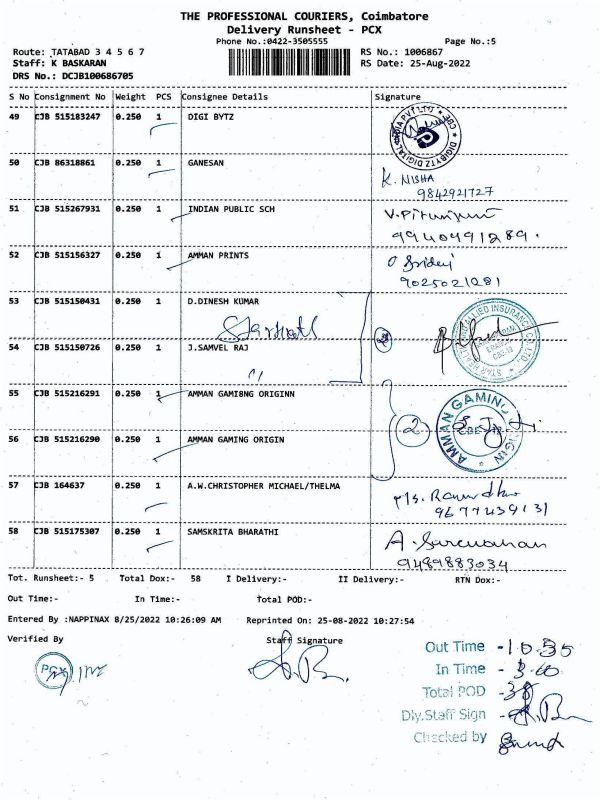 THE PROFESSIONAL COURIERS, Coimbatore
Delivery Runsheet - PCX
Phone No.:0422-3505555 Page No.:5
Route: TATABAD 3 4 5 6 7 RS No.: 1006867
Staff: K BASKARAN RS Date: 25-Aug-2022
DRS No.: DCJB100686705
S No Consignment No Weight PCS Consignee Details Signature
49 CJB 515183247 0.250 1 DIGI BYTZ
50 CJB 86318861 0.250 1 GANESAN
K. NISHA
9842921727
51 CJB 515267931 0.250 1 INDIAN PUBLIC SCH
9940491289.
52 CJB 515156327 0.250 1 AMMAN PRINTS
9025021281
53 CJB 515150431 0.250 1 D.DINESH KUMAR
2
54 CJB 515150726 0.250 1 J.SAMVEL RAJ
55 CJB 515216291 0.250 1 AMMAN GAMI8NG ORIGINN
AMMAN GAMING ORIGIN
2
56 CJB 515216290 0.250 1 AMMAN GAMING ORIGIN
57 CJB 164637 0.250 1 A.W.CHRISTOPHER MICHAEL/THELMA
9677439131
58 CJB 515175307 0.250 1 SAMSKRITA BHARATHI
A. Saravanan
9489883034
Tot. Runsheet:- 5 Total Dox:- 58 I Delivery:- II Delivery:- RTN Dox:-
Out Time:- In Time:- Total POD:-
Entered By :NAPPINAX 8/25/2022 10:26:09 AM Reprinted On: 25-08-2022 10:27:54
Verified By Staff Signature
PCX
Out Time - 10.35
In Time - 3.00
Total POD - 38
Dly.Staff Sign -
Checked by